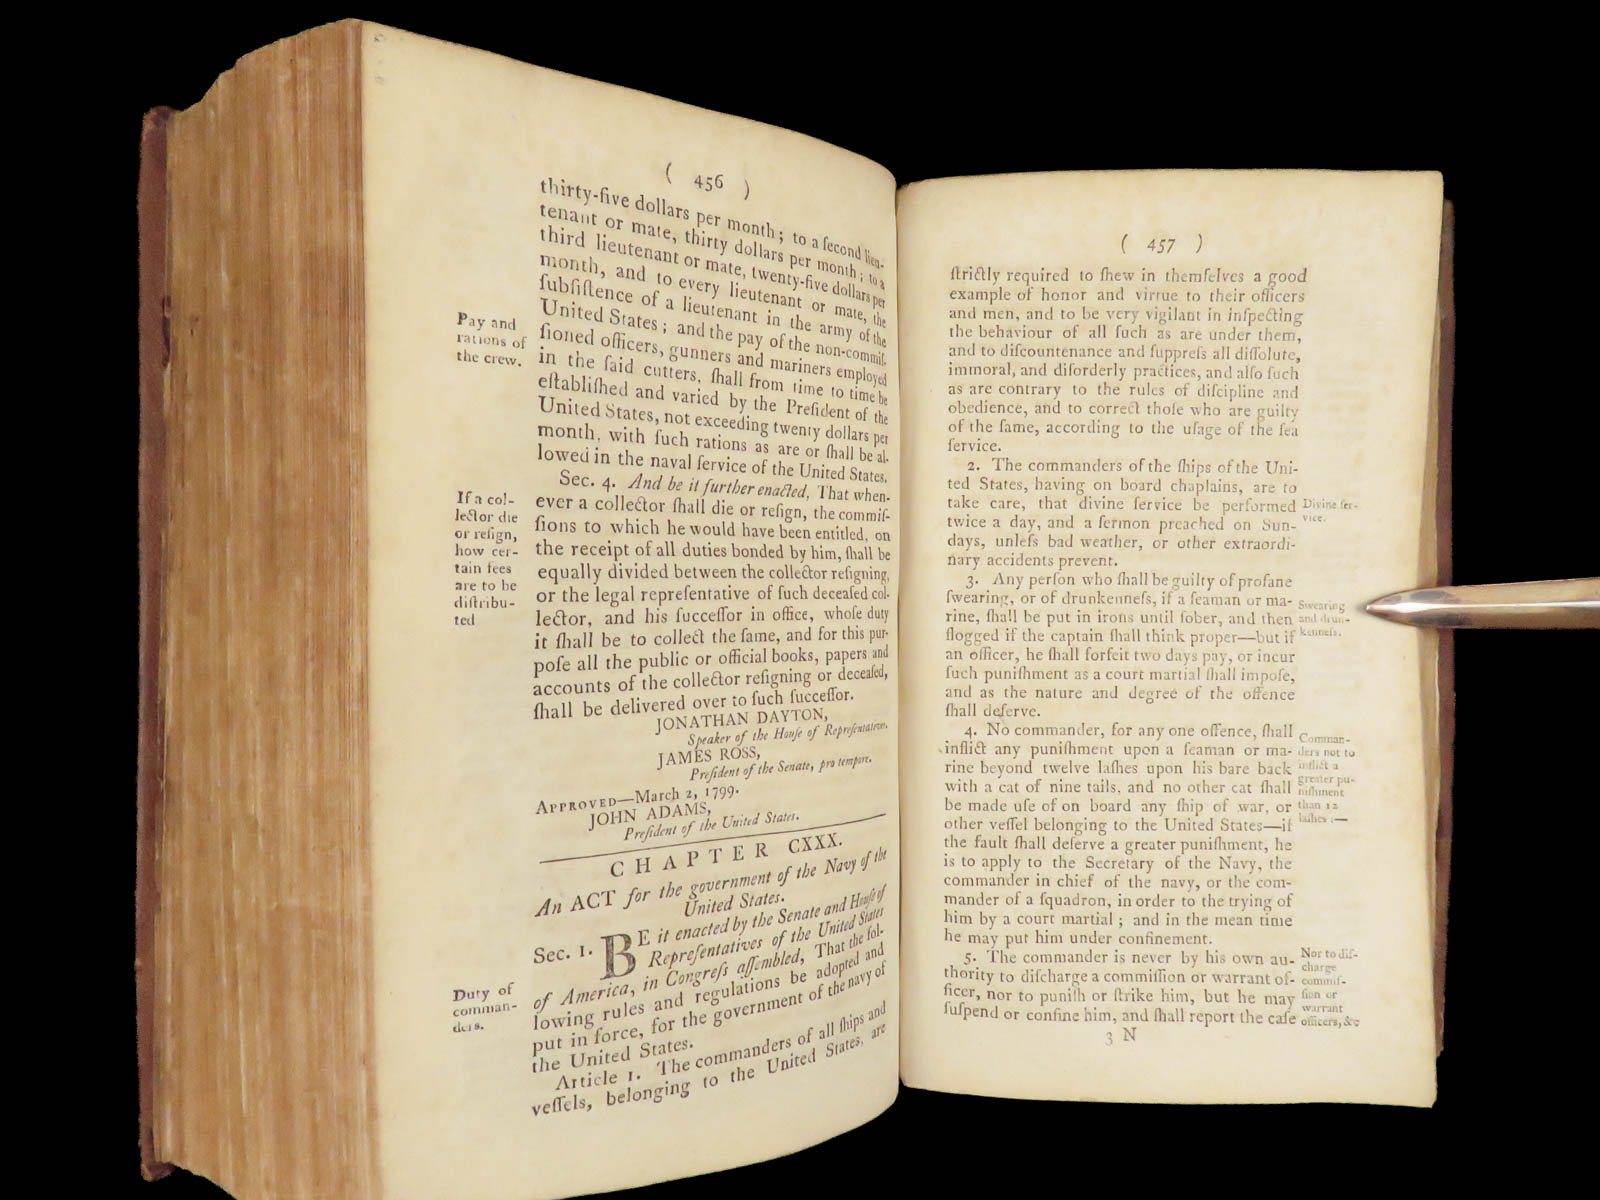 ( 456 )
thirty-five dollars per month; to a ſecond lieu-
tenant or mate, thirty dollars per month; to a
third lieutenant or mate, twenty-five dollars per
month, and to every lieutenant or mate, the
ſubſiſtence of a lieutenant in the army of the
United States; and the pay of the non-commiſ-
ſioned officers, gunners and mariners employed
in the ſaid cutters, ſhall from time to time be
eſtabliſhed and varied by the Preſident of the
United States, not exceeding twenty dollars per
month, with ſuch rations as are or ſhall be al-
lowed in the naval ſervice of the United States.
Pay and
rations of
the crew.
Sec. 4. And be it further enacted, That when-
ever a collector ſhall die or reſign, the commiſ-
ſions to which he would have been entitled, on
the receipt of all duties bonded by him, ſhall be
equally divided between the collector reſigning,
or the legal repreſentative of ſuch deceaſed col-
lector, and his ſucceſſor in office, whoſe duty
it ſhall be to collect the ſame, and for this pur-
poſe all the public or official books, papers and
accounts of the collector reſigning or deceaſed,
ſhall be delivered over to ſuch ſucceſſor.
If a col-
lector die
or reſign,
how cer-
tain fees
are to be
diſtribu-
ted
JONATHAN DAYTON,
Speaker of the Houſe of Repreſentatives.
JAMES ROSS,
Preſident of the Senate, pro tempore.
APPROVED—March 2, 1799.
JOHN ADAMS,
Preſident of the United States.
CHAPTER CXXX.
An ACT for the government of the Navy of the
United States.
Sec. 1. BE it enacted by the Senate and Houſe of
Repreſentatives of the United States
of America, in Congreſs aſſembled, That the fol-
lowing rules and regulations be adopted and
put in force, for the government of the navy of
the United States.
Duty of
comman-
ders.
Article 1. The commanders of all ſhips and
veſſels, belonging to the United States, are
( 457 )
ſtrictly required to ſhew in themſelves a good
example of honor and virtue to their officers
and men, and to be very vigilant in inſpecting
the behaviour of all ſuch as are under them,
and to diſcountenance and ſuppreſs all diſſolute,
immoral, and diſorderly practices, and alſo ſuch
as are contrary to the rules of diſcipline and
obedience, and to correct thoſe who are guilty
of the ſame, according to the uſage of the ſea
ſervice.
2. The commanders of the ſhips of the Uni-
ted States, having on board chaplains, are to
take care, that divine ſervice be performed
twice a day, and a ſermon preached on Sun-
days, unleſs bad weather, or other extraordi-
nary accidents prevent.
Divine ſer-
vice.
3. Any perſon who ſhall be guilty of profane
ſwearing, or of drunkenneſs, if a ſeaman or ma-
rine, ſhall be put in irons until ſober, and then
flogged if the captain ſhall think proper—but if
an officer, he ſhall forfeit two days pay, or incur
ſuch puniſhment as a court martial ſhall impoſe,
and as the nature and degree of the offence
ſhall deſerve.
Swearing
and drun-
kenneſs.
4. No commander, for any one offence, ſhall
inflict any puniſhment upon a ſeaman or ma-
rine beyond twelve laſhes upon his bare back
with a cat of nine tails, and no other cat ſhall
be made uſe of on board any ſhip of war, or
other veſſel belonging to the United States—if
the fault ſhall deſerve a greater puniſhment, he
is to apply to the Secretary of the Navy, the
commander in chief of the navy, or the com-
mander of a ſquadron, in order to the trying of
him by a court martial; and in the mean time
he may put him under confinement.
Comman-
ders not to
inflict a
greater pu-
niſhment
than 12
laſhes:—
5. The commander is never by his own au-
thority to diſcharge a commiſſion or warrant of-
ficer, nor to puniſh or ſtrike him, but he may
ſuſpend or confine him, and ſhall report the caſe
Nor to diſ-
charge
commiſ-
ſion or
warrant
officers, &c
3 N